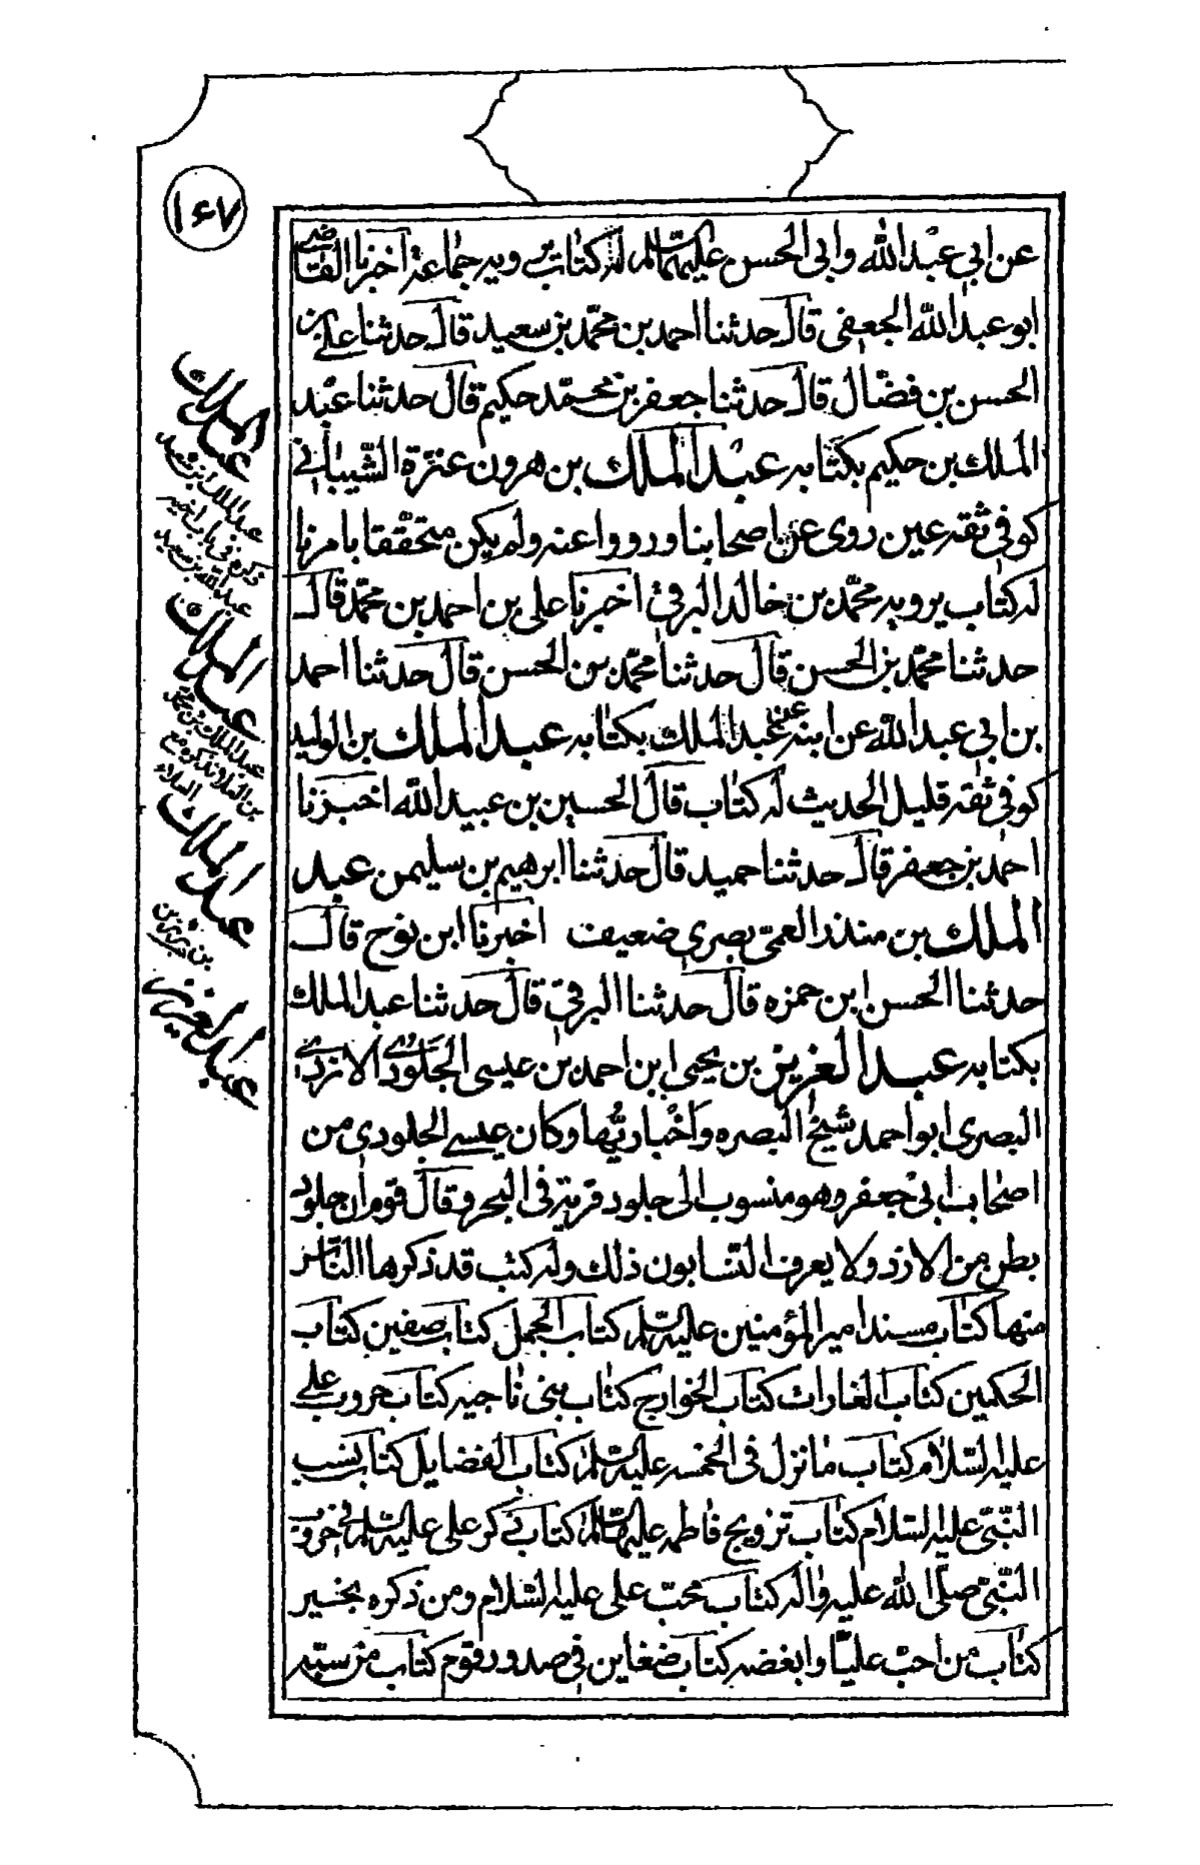 ١٦٧
عن ابي عبدالله وابي الحسن عليهما السلم له كتاب يرويه جماعة اخبرنا القاضي
ابو عبدالله الجعفى قال حدثنا احمد بن محمّد بن سعيد قال حدثنا على بن
الحسن بن فضال قال حدثنا جعفر بن محمّد حكيم قال حدثنا عبد
الملك بن حكيم بكتابه عبد الملك بن هرون عنترة الشّيباني
كوفى ثقة عين روى عن اصحابنا ورووا عنه ولم يكن متحقّقا بامرنا
له كتاب يرويه محمّد بن خالد البرقى اخبرنا على بن احمد بن محمّد قال
حدثنا محمّد بن الحسن قال حدثنا محمّد بن الحسن قال حدثنا احمد
بن ابي عبدالله عن ابنه عن عبدالملك بكتابه عبد الملك بن الوليد
كوفى ثقه قليل الحديث له كتاب قال الحسين بن عبيد الله اخبرنا
احمد بن جعفر قال حدثنا حميد قال حدثنا ابرهيم بن سليمن عبد
الملك بن منذر العمىّ بصرى ضعيف اخبرنا ابن نوح قال
حدثنا الحسن ابن حمزه قال حدثنا البرقى قال حدثنا عبد الملك
بكتابه عبد العزيز بن يحيى ابن احمد بن عيسى الجَلودى الازدى
البصرى ابو احمد شيخ البصره واخباريّها وكان عيسى الجلودى من
اصحاب ابى جعفر وهو منسوب الى جلود قرية فى البحر وقال قوم ان جلود
بطن من الازد ولا يعرف النسّابون ذلك وله كتب قد ذكرها النّاس
منها كتاب مسند امير المؤمنين عليه السلم كتاب الجمل كتاب صفين كتاب
الحكمين كتاب الغارات كتاب الخوارج كتاب بنى ناجيه كتاب حروب على
عليه السّلام كتاب ما نزل فى الخمسه عليهم السلم كتاب الفضايل كتاب نسب
النّبىّ عليه السّلام كتاب تزويج فاطمه عليها السلم كتاب ذكر على عليه السلم فى حروب
النّبىّ صلّى الله عليه واله كتاب محبّ على عليه السّلام ومن ذكره بخير
كتاب من احبّ عليّا وابغضه كتاب ضغاين فى صدور قوم كتاب من سبّه
عبد الملك
عبد الملك بن سعيد
ذكره فى باب اخيه
عبد الله بن سعيد
عبد الملك
عبد الملك بن محمد
بن العلا ذكره مع
العلاء
عبد الملك
عبد العزيز